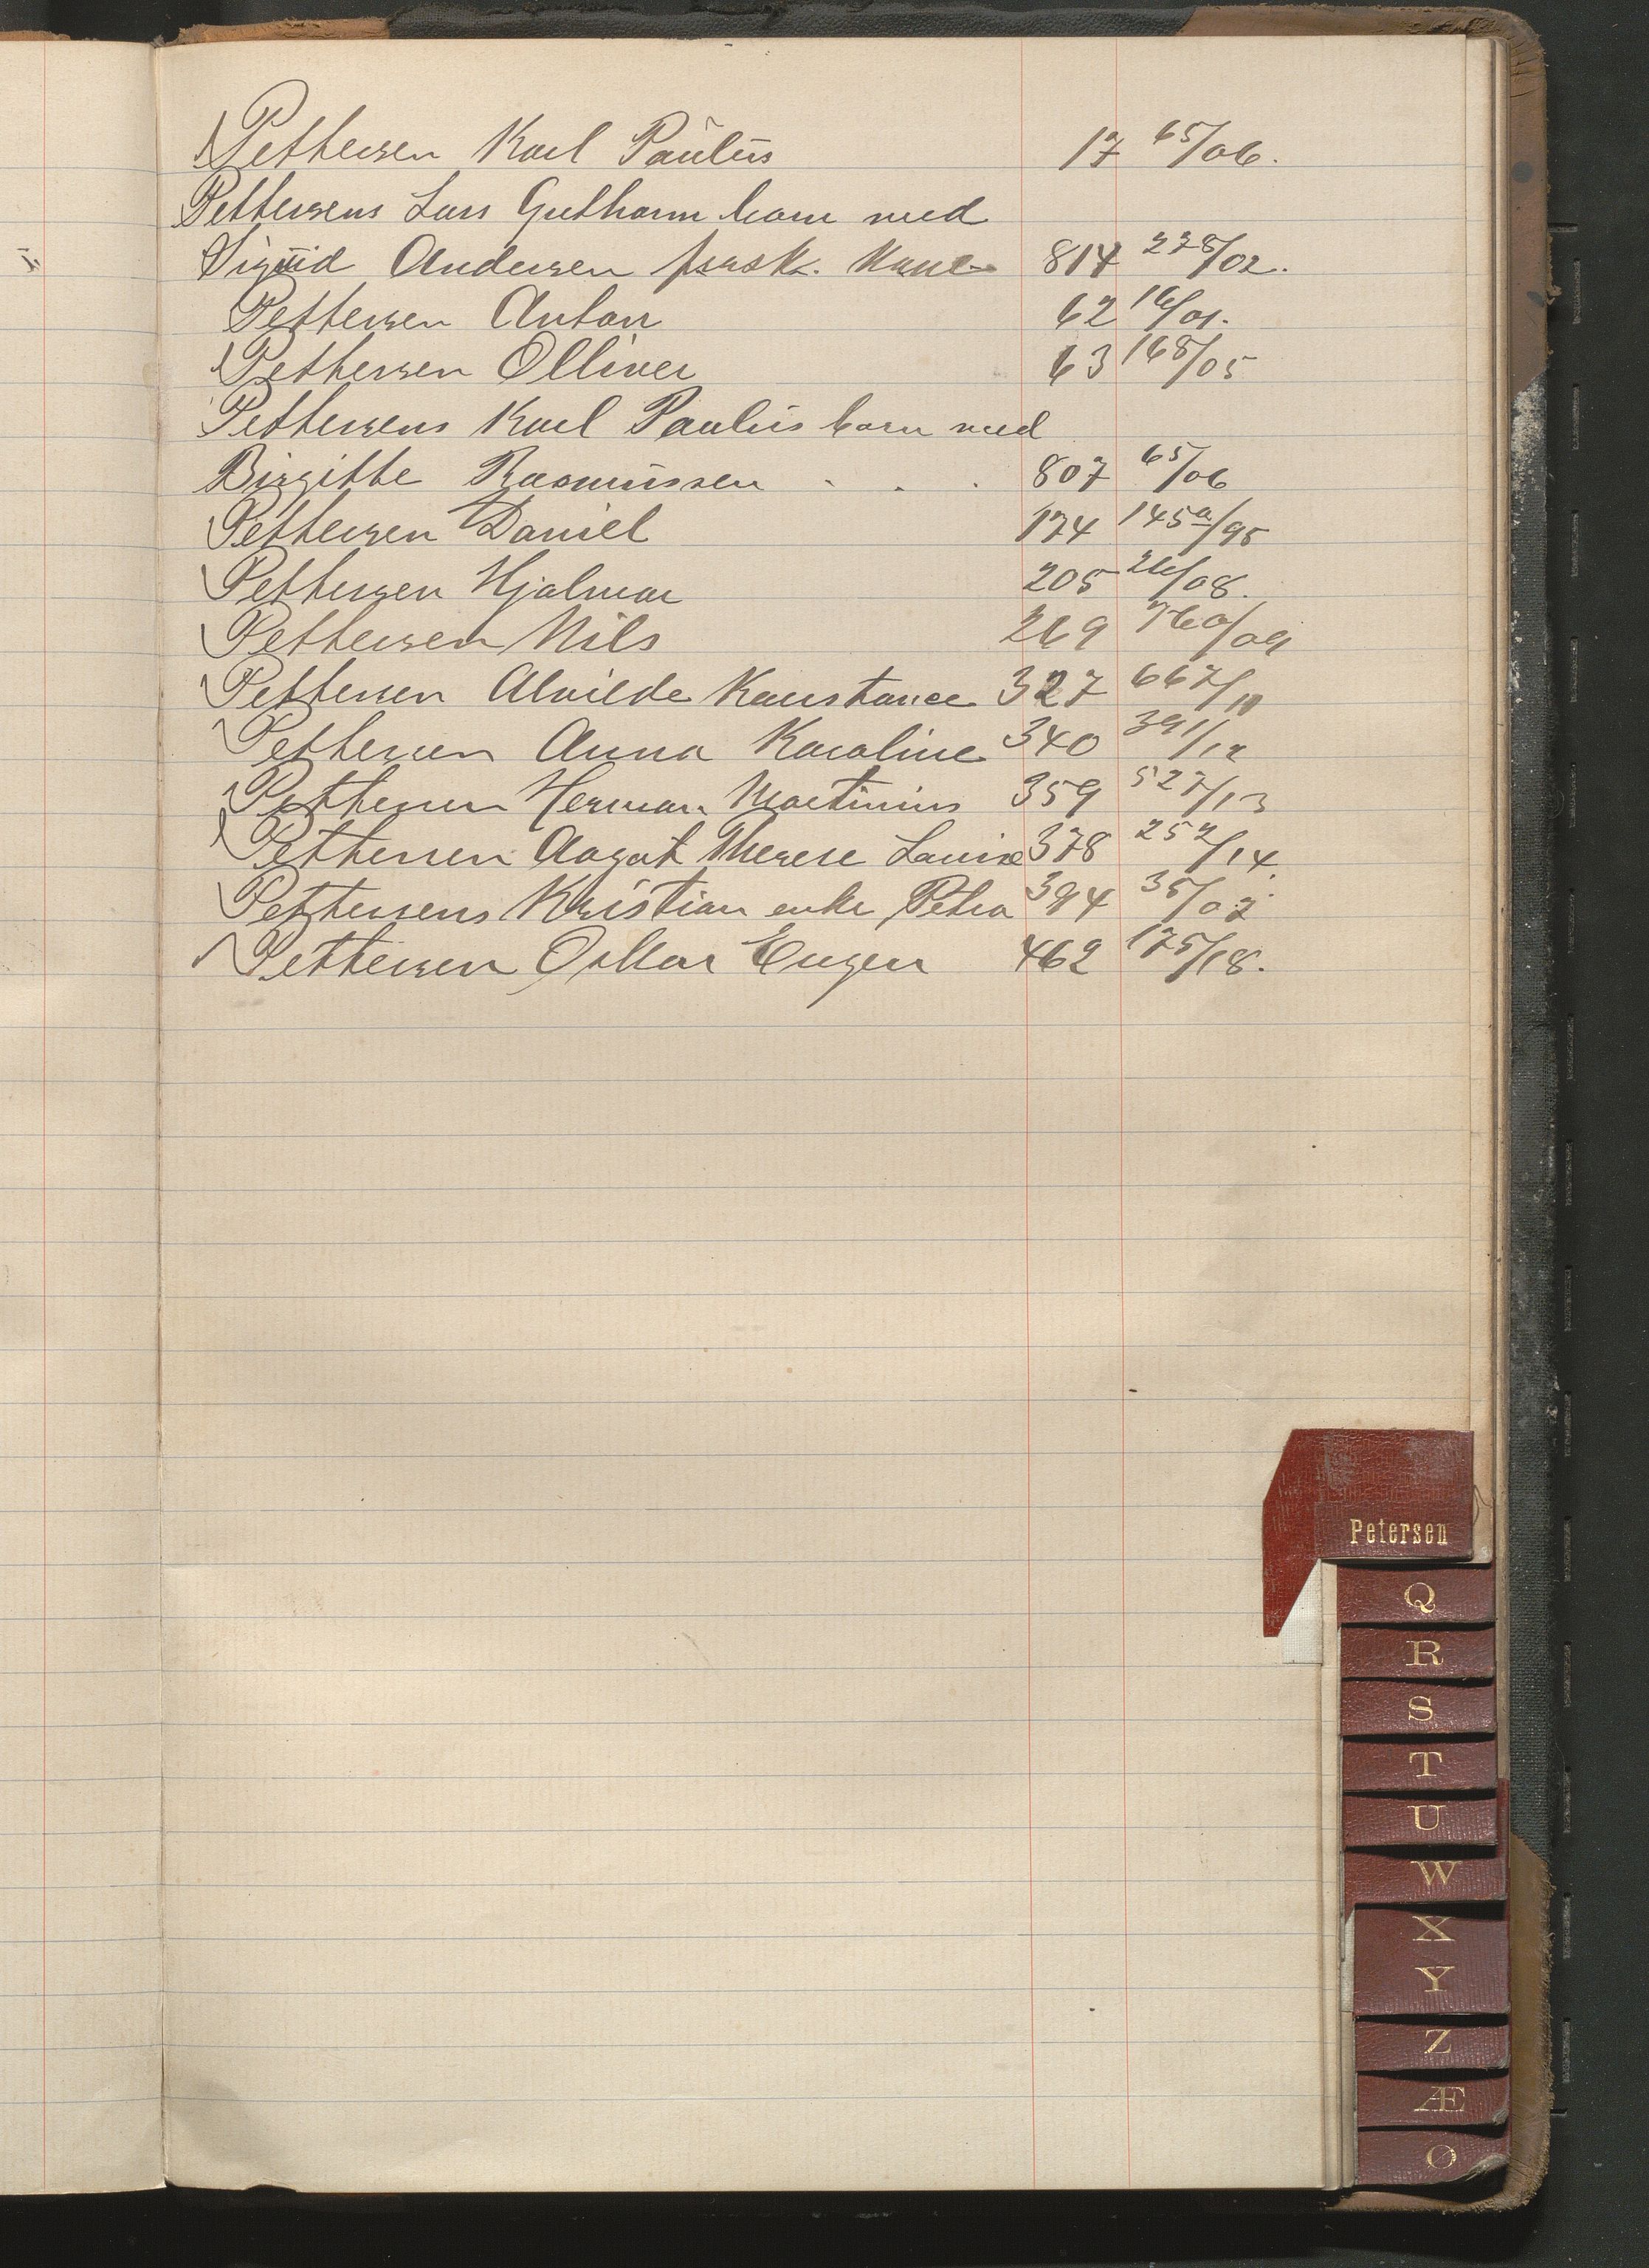 Pettersen Karl Paulus 17 65/06.
Pettersens Lars Guthorm barn med
Sigrid Andersen førsk. Kone 814 228/02.
Pettersen Anton 62 16/01.
Pettersen Olliver 63 168/05
Pettersens Karl Paulus barn med
Birgitte Rasmussen . . . 807 65/06
Pettersen Daniel 174 145a/95
Pettersen Hjalmar 205 26/08.
Pettersen Nils 269 760/09
Pettersen Alvilde Konstance 327 667/10
Pettersen Anna Karoline 340 391/12
Pettersen Herman Martinius 359 527/13
Pettersen Aagot Therese Louise 378 252/14.
Pettersens Kristian enke Petra 394 35/07.
Pettersen Oskar Eugen 462 175/18.
Petersen
Q
R
S
T
U
W
X
Y
Z
Æ
Ø